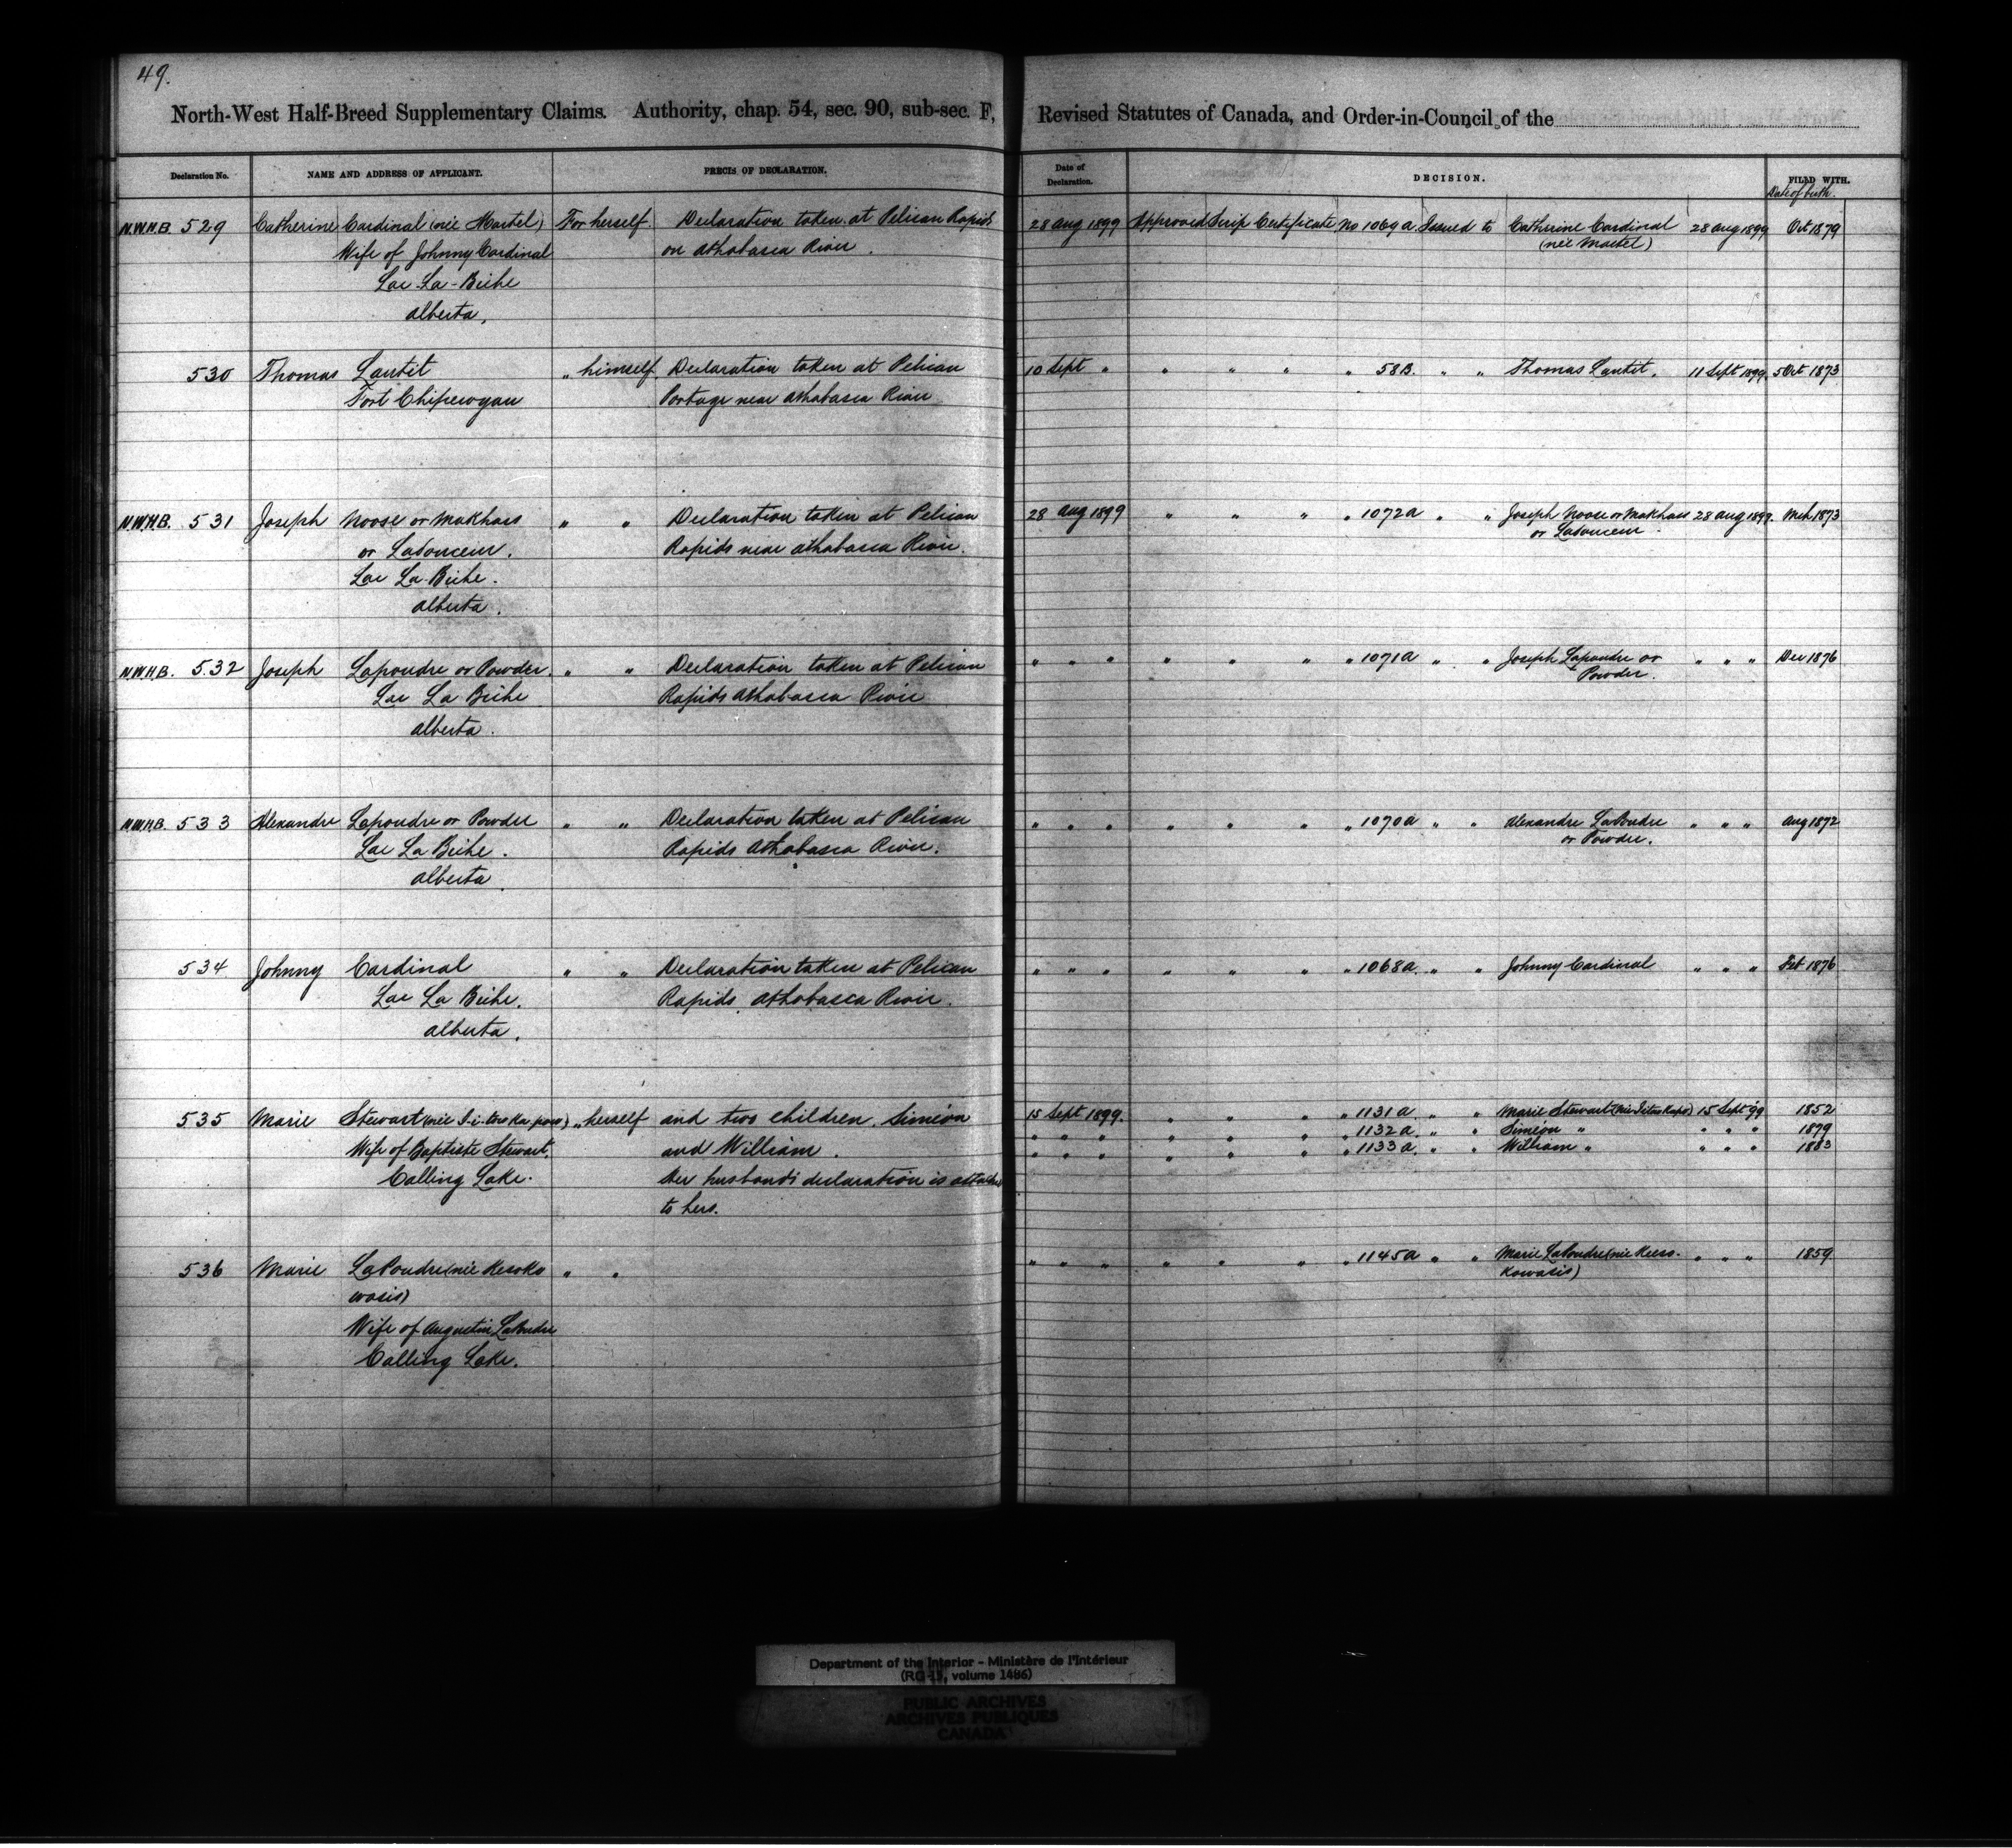 49.
North-West Half-Breed Supplementary Claims. Authority, chap. 54, sec. 90, sub-sec. F, Revised Statutes of Canada, and Order-in-Council of the
Declaration No. NAME AND ADDRESS OF APPLICANT. PRECIS OF DECLARATION. Date of Declaration. DECISION. FILED WITH.
Date of birth.
N.W.H.B. 529 Catherine Cardinal (née Martel) For herself. Declaration taken at Pelican Rapids 28 Aug 1899 Approved Scrip Certificate No 1069a Issued to Catherine Cardinal 28 Aug 1899 Oct 1879
Wife of Johnny Cardinal on Athabasca River. (née Martel)
Lac La-Biche
Alberta,
530 Thomas Lautit " himself. Declaration taken at Pelican 10 Sept " " " " " 58B. " " Thomas Lautit. 11 Sept 1899. 5 Oct 1873
Fort Chipewyan Portage near Athabasca River
N.W.H.B. 531 Joseph Noose or Mukhass " " Declaration taken at Pelican 28 Aug 1899 " " " " 1072a " " Joseph Noose or Mukhass 28 Aug 1899. Mch 1873
or Ladouceur. Rapids near Athabasca River. or Ladouceur
Lac La-Biche.
Alberta.
N.W.H.B. 532 Joseph Lapoudre or Powder. " " Declaration taken at Pelican " " " " " " " 1071a " " Joseph Lapoudre or " " " Dec 1876
Lac La Biche Rapids Athabasca River Powder.
Alberta.
N.W.H.B. 533 Alexandre Lapoudre or Powder " " Declaration taken at Pelican " " " " " " " 1070a " " Alexandre LaPoudre " " " Aug 1872
Lac La Biche. Rapids Athabasca River. or Powder.
Alberta.
534 Johnny Cardinal " " Declaration taken at Pelican " " " " " " " 1068a. " " Johnny Cardinal " " " Feb 1876
Lac La Biche. Rapids, Athabasca River.
Alberta.
535 Marie Stewart " herself and two children. Siméon 15 Sept 1899. " " " " 1131a " " Marie Stewart 15 Sept 99 1852
" " " " " " " 1132a. " " Siméon " " " " 1879
Wife of Baptiste Stewart. and William. " " " " " " " 1133a. " " William " " " " 1883
Calling Lake. Her husband's declaration is attached
to hers.
536 Marie LaPoudre (née Kesoko " " " " " " " " " 1145a " " Marie LaPoudre (née Keeso- " " " 1859
wasis) kowasis)
Wife of Augustin LaPoudre
Calling Lake.
Department of the Interior - Ministère de l'Intérieur
(RG 15, volume 1486)
PUBLIC ARCHIVES
ARCHIVES PUBLIQUES
CANADA